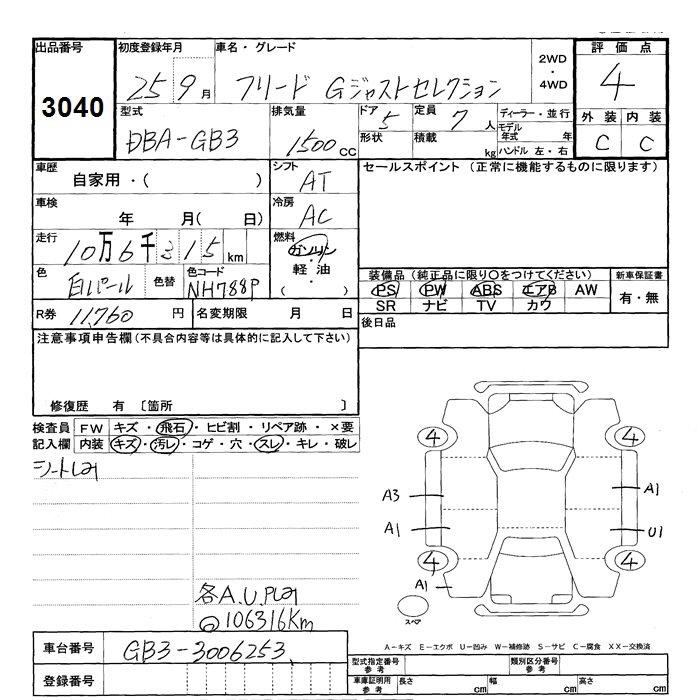 出品番号 初度登録年月 車名・グレード 2WD・4WD 評価点
3040 25 9月 フリード Gジャストセレクション 4
型式 排気量 ドア 定員 ディーラー・並行 外装 内装
DBA-GB3 1500cc 5 7人 モデル年式 年 C C
形状 積載 kg ハンドル 左・右
車歴 シフト セールスポイント (正常に機能するものに限ります)
自家用・( ) AT
車検 冷房
年 月( 日) AC
走行 燃料
10万6千315km ガソリン・軽油・( )
色 色替 色コード 装備品 (純正品に限り○をつけてください) 新車保証書
白パール NH788P PS PW ABS エアB AW 有・無
SR ナビ TV カワ
R券 11,760円 名変期限 月 日 後日品
注意事項申告欄 (不具合内容等は具体的に記入して下さい)
修復歴 有 〔箇所 〕
検査員 FW キズ・飛石・ヒビ割・リペア跡・×要
記入欄 内装 キズ・汚レ・コゲ・穴・スレ・キレ・破レ
4 4
A3 A1
A1 U1
4 4
A1
スペア
各A.U.
106316Km
A-キズ E-エクボ U-凹み W-補修跡 S-サビ C-腐食 XX-交換済
車台番号 GB3-3006253
型式指定番号 参考 類別区分番号 参考
登録番号 車庫証明用 参考 長さ cm 幅 cm 高さ cm